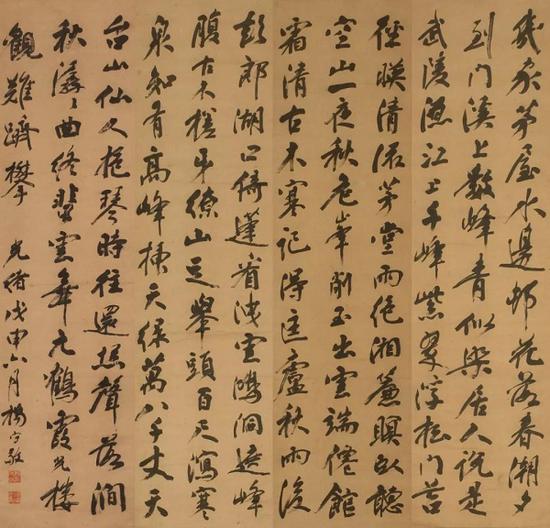 幾家茅屋水邊邨花落春潮夕
到門溪上數峰青似染居人說是
武陵源江上千峰紫翠浮松門苔
徑暎清流茅堂雨絕湘簾暝臥聽
空山一夜秋危峯削玉出雲端僊館
霜清古木寒記得匡廬秋雨後
彭郎湖口倚蓬看洩雲噴澗遮峰
腹古木槎牙繚山足舉頭百尺瀉寒
泉知有高峰插天綠萬八千丈天
台山仙人抱琴時往還聲落澗
秋潺潺曲終雲舞元鶴霞光樓
觀難躋攀 光緒戊申六月楊守敬